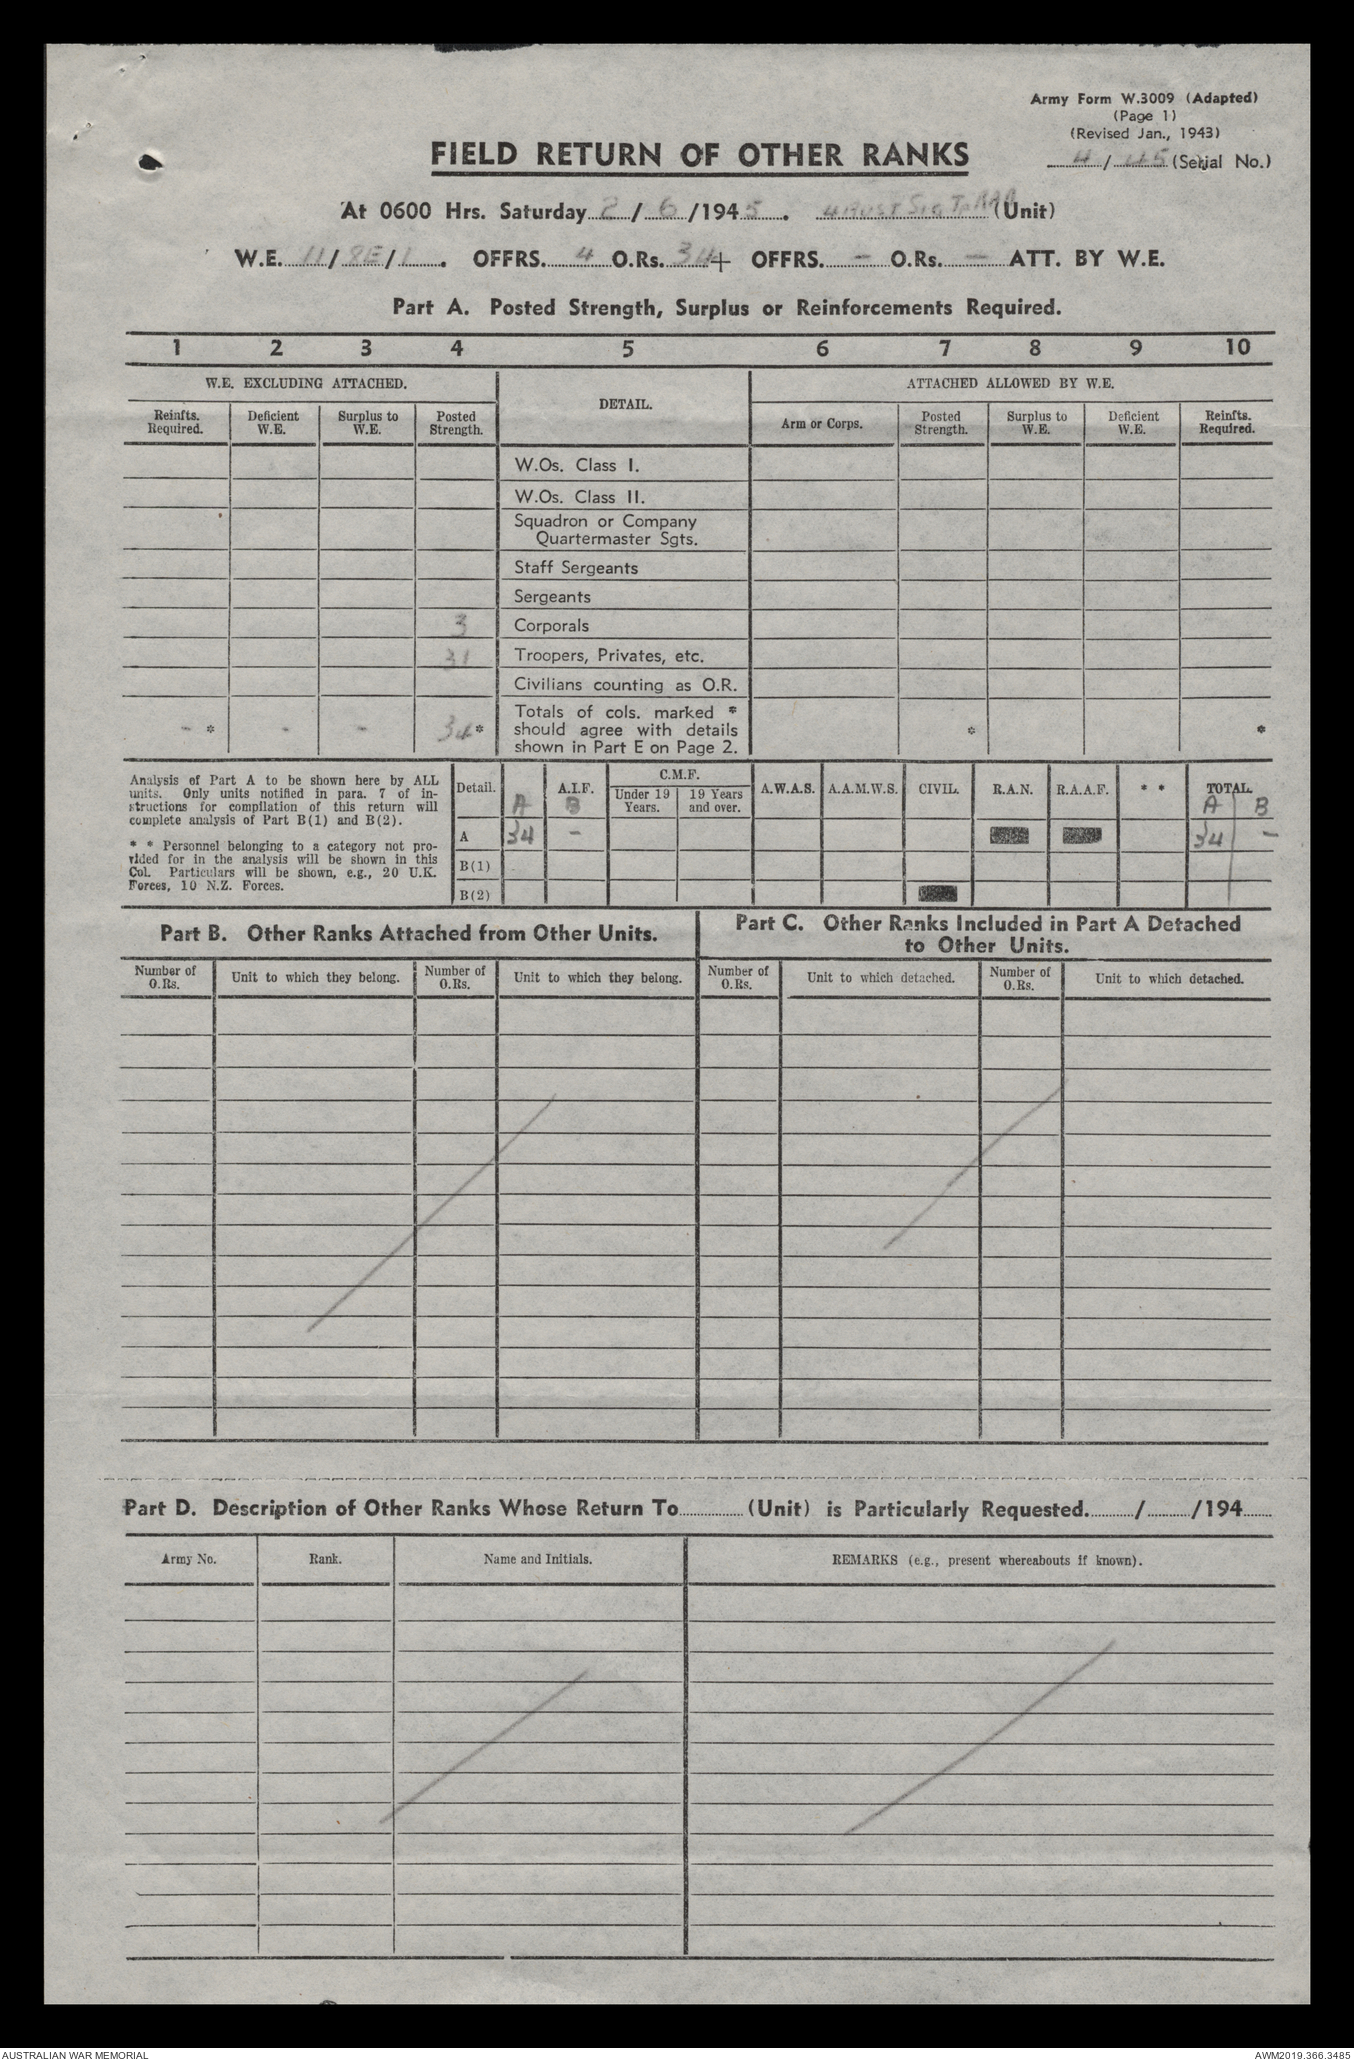 Army Form W.3009 (Adapted)
(Page 1)
(Revised Jan., 1943)
FIELD RETURN OF OTHER RANKS
4/45 (Serial No.)
At 0600 Hrs. Saturday 2/6/1945. 4 AUST SIG Tp RAA (Unit)
W.E. 11/8E/1. OFFRS. 4 O.Rs. 34+ OFFRS. - O.Rs. - ATT. BY W.E.
Part A. Posted Strength, Surplus or Reinforcements Required.
1 2 3 4 5 6 7 8 9 10
W.E. EXCLUDING ATTACHED. DETAIL. ATTACHED ALLOWED BY W.E.
Reinfts. Required. Deficient W.E. Surplus to W.E. Posted Strength. Arm or Corps. Posted Strength. Surplus to W.E. Deficient W.E. Reinfts. Required.
W.Os. Class I.
W.Os. Class II.
Squadron or Company
Quartermaster Sgts.
Staff Sergeants
Sergeants
3 Corporals
31 Troopers, Privates, etc.
Civilians counting as O.R.
Totals of cols. marked *
- * - - 34* should agree with details * *
shown in Part E on Page 2.
Analysis of Part A to be shown here by ALL
units. Only units notified in para. 7 of in-
structions for compilation of this return will
complete analysis of Part B(1) and B(2).
* * Personnel belonging to a category not pro-
vided for in the analysis will be shown in this
Col. Particulars will be shown, e.g., 20 U.K.
Forces, 10 N.Z. Forces.
Detail. A.I.F. C.M.F. A.W.A.S. A.A.M.W.S. CIVIL. R.A.N. R.A.A.F. * * TOTAL.
A B Under 19 Years. 19 Years and over. A B
A 34 - 34 -
B(1)
B(2)
Part B. Other Ranks Attached from Other Units.
Part C. Other Ranks Included in Part A Detached
to Other Units.
Number of O.Rs. Unit to which they belong. Number of O.Rs. Unit to which they belong. Number of O.Rs. Unit to which detached. Number of O.Rs. Unit to which detached.
Part D. Description of Other Ranks Whose Return To............ (Unit) is Particularly Requested........./........./194......
Army No. Rank. Name and Initials. REMARKS (e.g., present whereabouts if known).
AUSTRALIAN WAR MEMORIAL AWM2019.366.3485